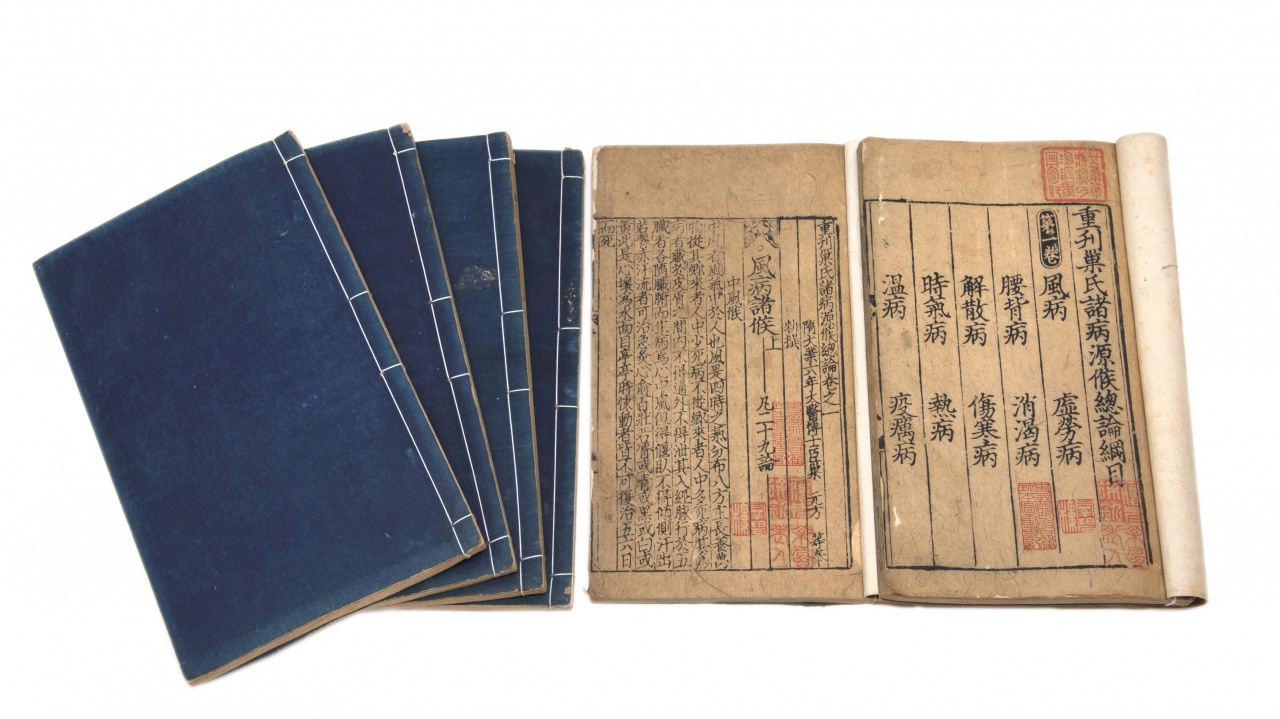 重刋巢氏諸病源候總論綱目
第一卷
風病 虛勞病
腰背病 消渴病
解散病 傷寒病
時氣病 熱病
温病 疫癘病
重刊巢氏諸病源候總論卷之一
隋大業六年太醫博士臣巢 元方 等奉
勑撰
風病諸候上 凡二十九論
中風候
中風者風氣中於人也風是四時之氣分布八方主長養萬
物從其鄉來者人中少死病不從鄉來者人中多死病其為
病者藏於皮膚之間內不得通外不得泄其入經脉行於五
臟者各隨臟腑而生病焉心中風但得偃臥不得傾側汗出
若唇赤汗流者可治急灸心俞百壯若唇或青或黑或白或
黃此是心壞為水面目亭亭時悚動者皆不可復治五六日
而死